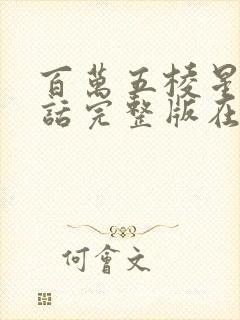 百萬五棱星
話完整版在
何會文